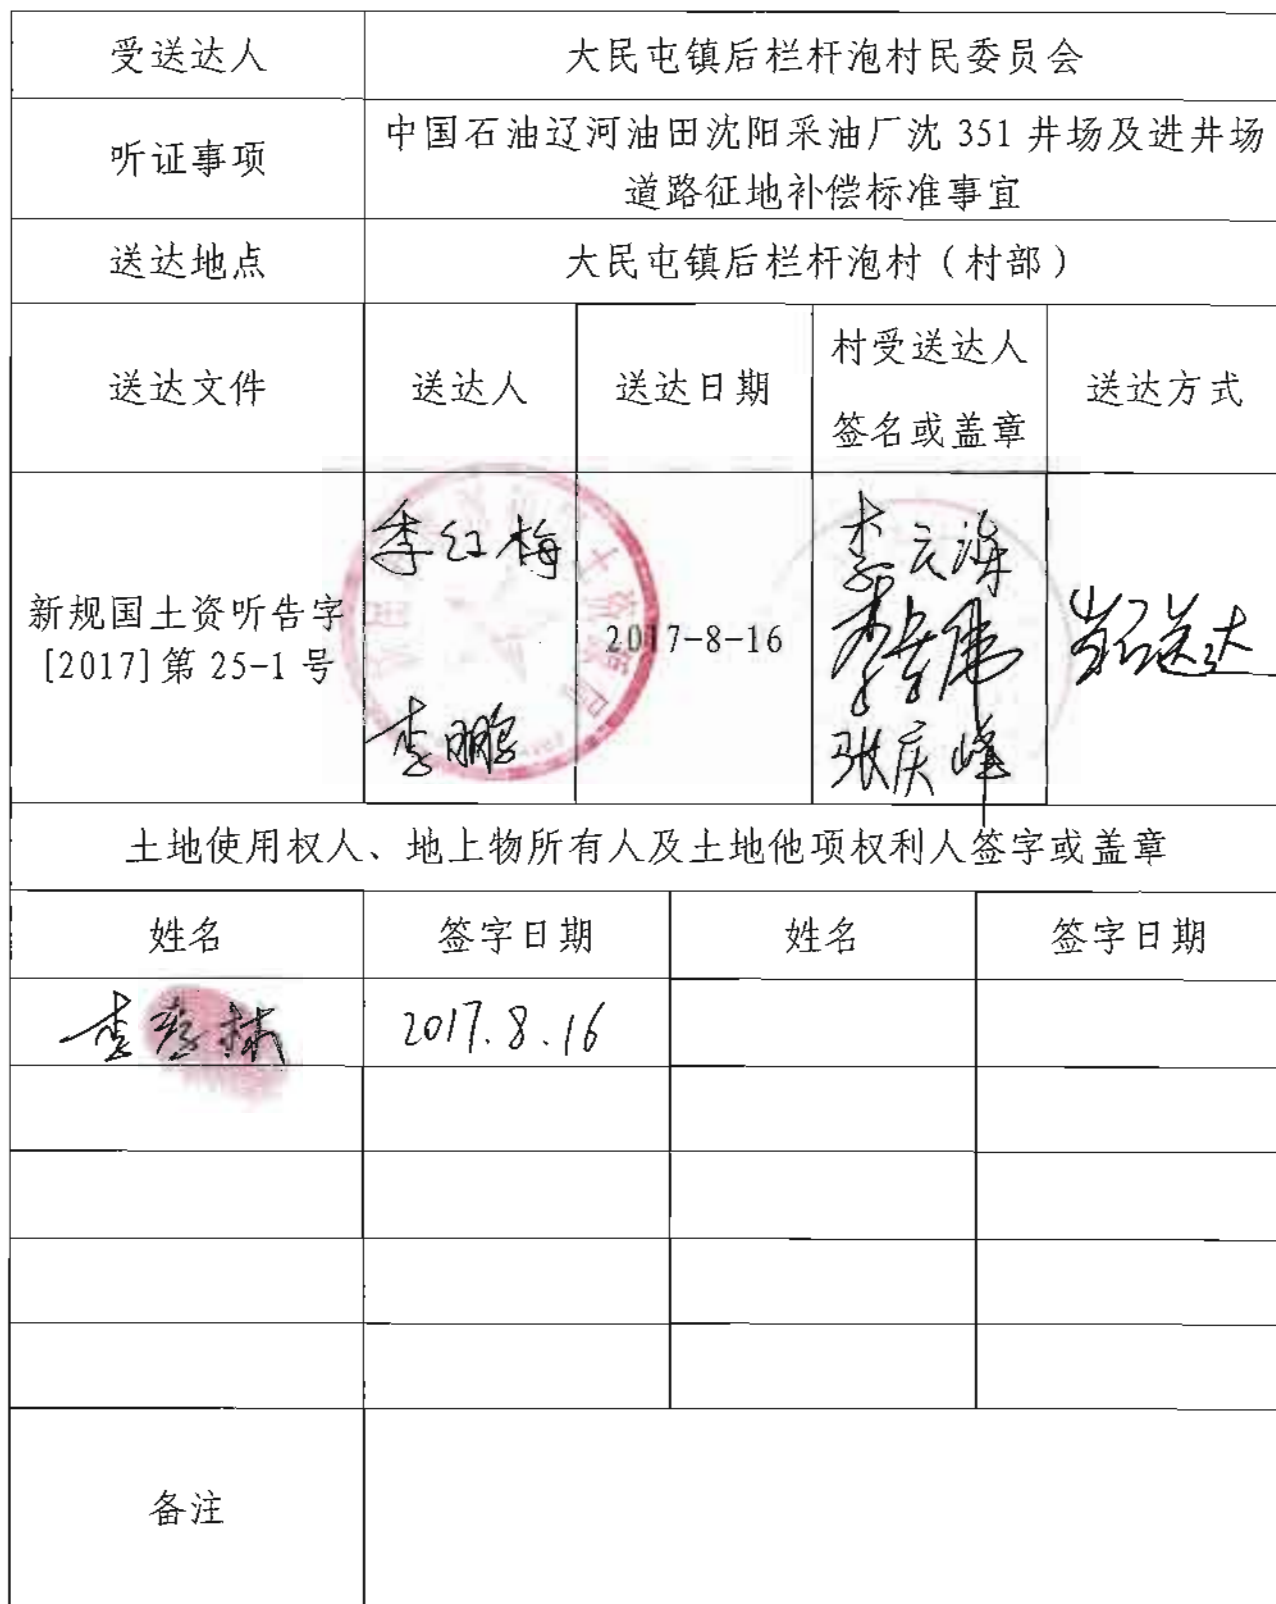 受送达人
大民屯镇后栏杆泡村民委员会
听证事项
中国石油辽河油田沈阳采油厂沈 351 井场及进井场
道路征地补偿标准事宜
送达地点
大民屯镇后栏杆泡村（村部）
送达文件
送达人
送达日期
村受送达人
签名或盖章
送达方式
新规国土资听告字
[2017] 第 25-1 号
季红梅
李鹏
2017-8-16
张庆峰
送达
土地使用权人、地上物所有人及土地他项权利人签字或盖章
姓名
签字日期
姓名
签字日期
2017.8.16
备注